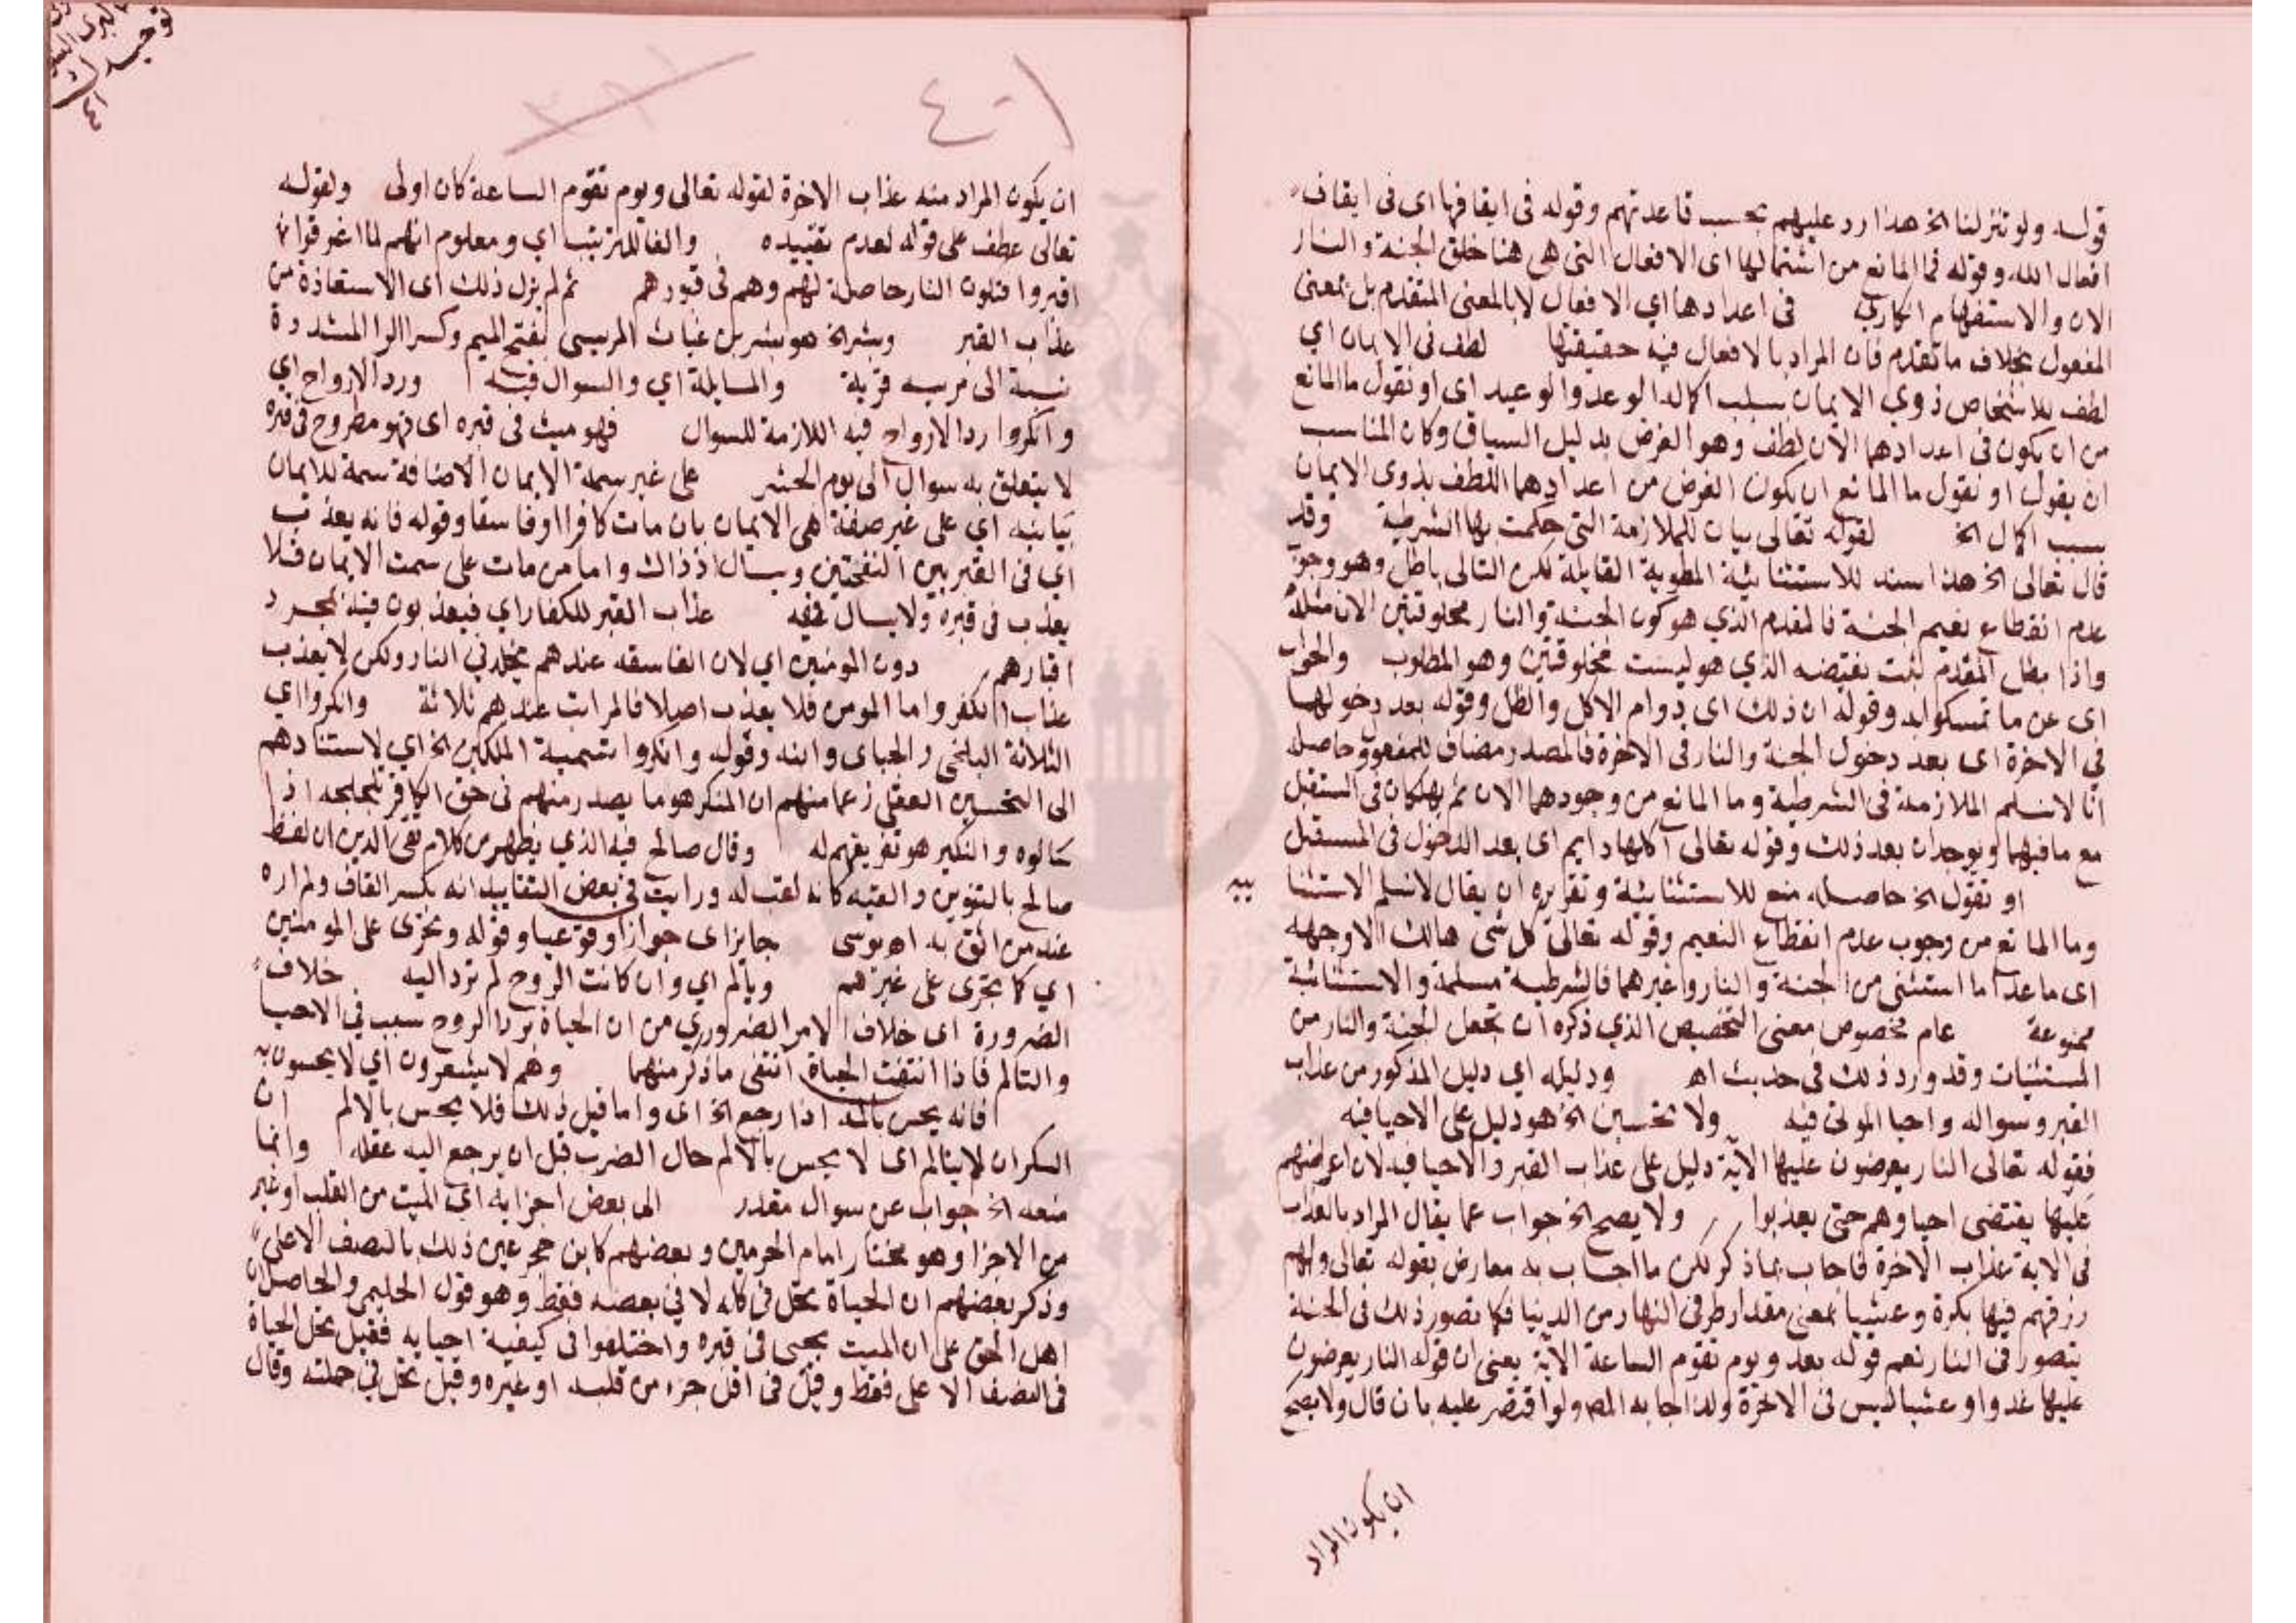 قوله ولو تنزلنا الخ هذا رد عليهم بحسب قاعدتهم وقوله فى ايقافها اى فى ايقاف
افعال الله وقوله فما المانع من اشتمالها اى الافعال التى هى هنا خلق الجنة والنار
الان والاستفهام انكاري فى اعدادها اي الافعال لا بالمعنى المتقدم بل بمعنى
المفعول بخلاف ما تقدم فان المراد بالافعال فيه حقيقتها لطف فى الايمان اي
لطف للاشخاص ذوي الايمان بسبب اكمال الوعد والوعيد اى او نقول ما المانع
من ان يكون فى اعدادهما الان لطف وهو الغرض بدليل السياق وكان المناسب
ان يقول او نقول ما المانع ان يكون الغرض من اعدادهما اللطف بذوى الايمان
بسبب اكمال الخ لقوله تعالى بيان للملازمة التى حكمت بها الشرطية وقد
قال تعالى الخ هذا سند للاستثنائية المطوية القايلة لكن التالى باطل وهو وجوب
عدم انقطاع نعيم الجنة فالمقدم الذي هو كون الجنة والنار مخلوقتين الان مثله
واذا بطل المقدم ثبت نقيضه الذي هو ليست مخلوقتين وهو المطلوب والجواب
اى عن ما تمسكوا به وقوله ان ذلك اى دوام الاكل والظل وقوله بعد دخولها
في الاخرة اى بعد دخول الجنة والنار فى الاخرة فالمصدر مضاف للمفعول وحاصله
انا لا نسلم الملازمة فى الشرطية وما المانع من وجودهما الان ثم يهلكان فى المستقبل
مع ما فيهما ويوجدان بعد ذلك وقوله تعالى اكلها دايم اى بعد الدخول فى المستقبل
او نقول الخ حاصله منع للاستثنائية وتقريره ان يقال لا نسلم الاستثنا
ييه
وما المانع من وجوب عدم انقطاع النعيم وقوله تعالى كل شى هالك الا وجهه
اى ما عدا ما استثنى من الجنة والنار وغيرهما فالشرطية مسلمة والاستثنائية
ممنوعة عام مخصوص معنى التخصيص الذي ذكره ان تجعل الجنة والنار من
المستثنيات وقد ورد ذلك فى حديث اه ودليله اي دليل المذكور من عذاب
القبر وسواله واحيا الموتى فيه ولا تحسبن الخ هو دليل على الاحيا فيه
فقوله تعالى النار يعرضون عليها الاية دليل على عذاب القبر والاحيا فيه لان عرضهم
عليها يقتضى احياوهم حتى يعذبوا ولا يصح الخ جواب عما يقال المراد بالعذاب
فى الاية عذاب الاخرة فاجاب بما ذكر لكن ما اجاب به معارض بقوله تعالى ولهم
رزقهم فيها بكرة وعشيا بمعنى مقدار طرفى النهار من الدنيا فكما تصور ذلك فى الجنة
يتصور فى النار نعم قوله بعد ويوم تقوم الساعة الاية يعنى ان قوله النار يعرضون
عليها غدوا وعشيا ليس فى الاخرة ولذا اجاب به المص ولو اقتصر عليه بان قال ولا يصح
ان يكون المراد
٤٠١
ان يكون المراد منه عذاب الاخرة لقوله تعالى ويوم تقوم الساعة كان اولى ولقوله
تعالى عطف على قوله لعدم تقييده والفا للترتيب اي ومعلوم انهم لما اغرقوا
اقبروا فتكون النار حاصلة لهم وهم فى قبورهم ثم لم يزل ذلك اى الاستعاذة من
عذاب القبر وبشر الخ هو بشر بن غياث المريسى بفتح الميم وكسر الرا المشددة
نسبة الى مريسه قرية والمسايلة اي والسوال فيه ورد الارواح اي
وانكروا رد الارواح فيه اللازمة للسوال فهو ميت فى قبره اى فهو مطروح فى قبره
لا يتعلق به سوال الى يوم الحشر على غير سمة الايمان الاضافة سمة للايمان
بيانية اي على غير صفة هى الايمان بان مات كافرا او فاسقا وقوله فانه يعذب
اي فى القبر بين النفختين ويسال اذ ذاك واما من مات على سمت الايمان فلا
يعذب فى قبره ولا يسال فيه عذاب القبر للكفار اي فيعذبون فيه بمجرد
اقبارهم دون المومنين اي لان الفاسقه عندهم مخلد في النار ولكن لا يعذب
عذاب الكفر واما المومن فلا يعذب اصلا فالمراتب عندهم ثلاثة وانكروا اى
الثلاثة البلخى والجباى وابنه وقوله وانكروا تسمية الملكين الخ اي لاستنادهم
الى التحسين العقلى زعما منهم ان المنكر هو ما يصدر منهم فى حق الكافر تلجلجه اذا
سالوه والنكير هو تفريقهم له وقال صالح فيه الذي يظهر من كلام تقى الدين ان لفظ
صالح بالتنوين والقبه كانه لقب له ورايت فى بعض التقاييد انه بكسر القاف ولم اره
عند من اثق به اه يوسى جايز اى جواز وقوعيا وقوله ويجرى على المومنين
اي كما يجرى على غيرهم ويالم اي وان كانت الروح لم ترد اليه خلاف
الضرورة اى خلاف الامر الضروري من ان الحياة برد الروح سبب في الاحيا
والتالم فاذا انتفت الحياة انتفى ما ذكر منهما وهم لا يشعرون اي لا يحسون به
فانه يحس بالمه اذا رجع الخ اى واما قبل ذلك فلا يحس بالالم ان
السكران لا يتالم اى لا يحس بالالم حال الضرب قبل ان يرجع اليه عقله وانما
منعه الخ جواب عن سوال مقدر الى بعض اجزايه اي الميت من القلب او غير
من الاجزا وهو مختار امام الحرمين وبعضهم كابن حجر عين ذلك بالنصف الاعلى
وذكر بعضهم ان الحياة تحل فى كله لا فى بعضه فقط وهو قول الحليمى والحاصل ان
اهل الحق على ان الميت يحيى فى قبره واختلفوا فى كيفية احيايه فقيل تحل الحياة
فى النصف الاعلى فقط وقيل فى اقل جزء من قلبه او غيره وقيل تحل في جملته وقال